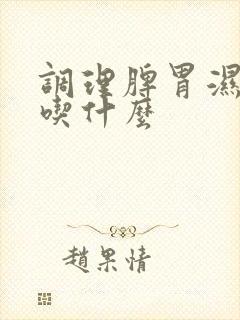 調理脾胃濕
喫什麽
趙果情